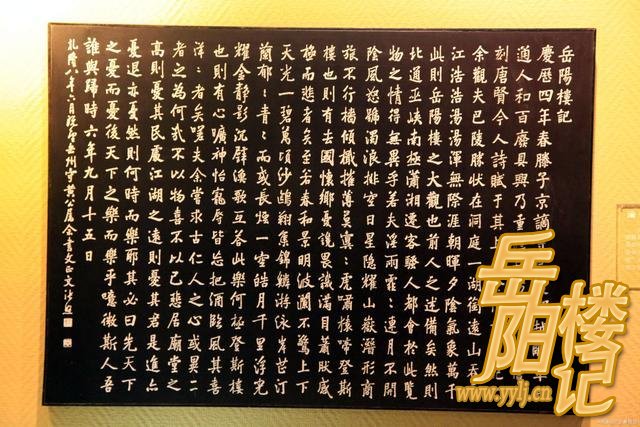 岳陽樓記
慶曆四年春滕子京謫
通人和百廢具興乃重
刻唐賢今人詩賦于其上
余觀夫巴陵勝狀在洞庭一湖銜遠山
江浩浩湯湯渾無際涯朝暉夕陰氣象萬千
此則岳陽樓之大觀也前人之述備矣然則
北通巫峽南極瀟湘遷客騷人都會於此覽
物之情得無異乎若夫淫雨霏霏連月不開
陰風怒號濁浪排空日星隱耀山嶽潛形商
旅不行檣傾檝摧薄暮冥冥虎嘯猿啼登斯
樓也則有去國懷鄉憂讒畏譏滿目蕭然感
極而悲者矣至若春和景明波瀾不驚上下
天光一碧萬頃沙鷗翔集錦鱗游泳岸芷汀
蘭郁郁青青而或長煙一空皓月千里浮光
耀金靜影沉璧漁歌互答此樂何極登斯樓
也則有心曠神怡寵辱皆忘把酒臨風其喜
洋洋者矣嗟夫余嘗求古仁人之心或異二
者之為何哉不以物喜不以己悲居廟堂之
高則憂其民處江湖之遠則憂其君是進亦
憂退亦憂然則何時而樂耶其必曰先天下
之憂而憂後天下之樂而樂乎噫微斯人吾
誰與歸時六年九月十五日
乾隆八年六月
岳阳楼记
www.yylj.cn